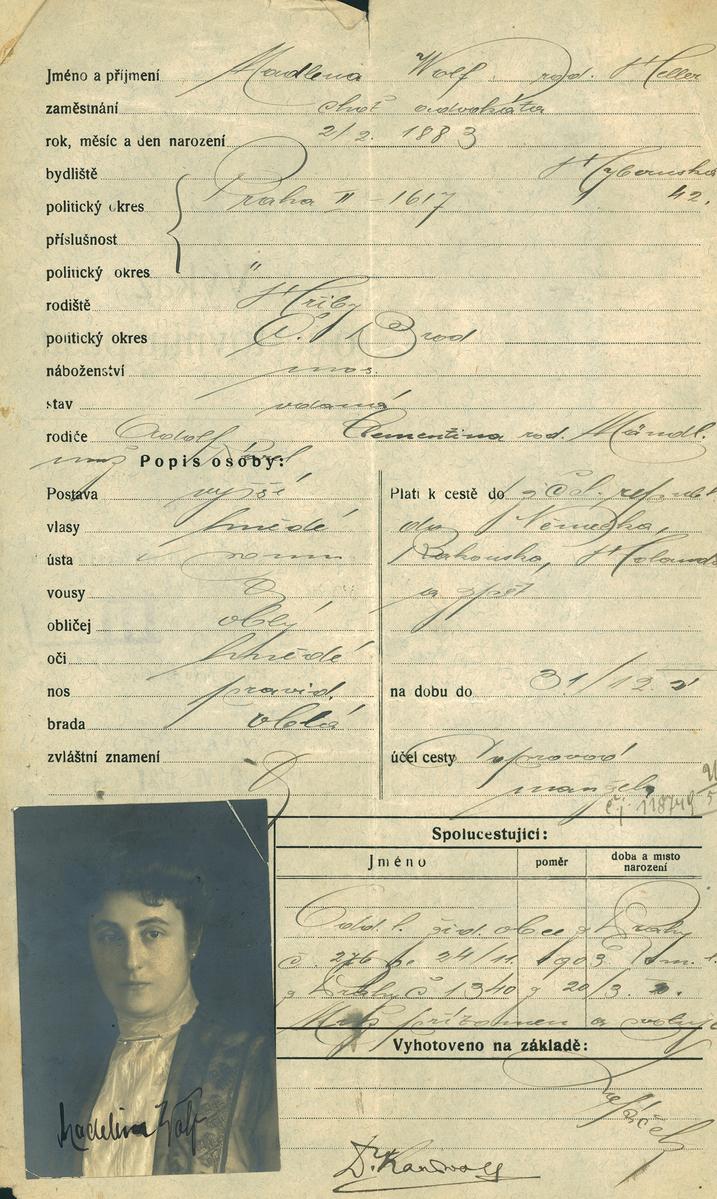 Jméno a příjmení Madlena Wolf, roz. Heller
zaměstnání choť advokáta
rok, měsíc a den narození 2/2. 1883
bydliště Hybernská
politický okres Praha II - 1617 42.
příslušnost
politický okres "
rodiště Hřiby
politický okres Č. Brod
náboženství mos.
stav vdaná
rodiče Adolf Clementina rod. Mändl.
Popis osoby:
Postava vyšší
Platí k cestě do
vlasy hnědé
do Německa,
ústa norm
Rakouska, Holands
vousy
a zpět
obličej oblý
oči hnědé
nos pravid.
na dobu do 31/12.
brada oblá
zvláštní znamení
účel cesty doprovod
manžela
č.j. 118749
Spolucestující:
Jméno poměr doba a místo narození
Odd. l. žid. obce z Prahy
č. 276 24/11. 1903
z Prahy č 1340 z 20/3.
Muž přítomen a
Vyhotoveno na základě:
Madelina Wolf